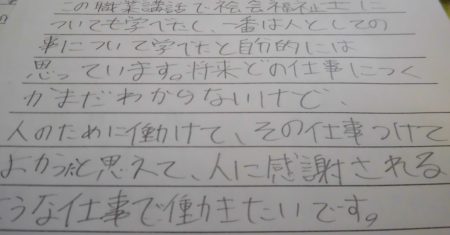 この職業講話で社会福祉士に
ついても学べたし、一番は人としての
事について学べたと自分的には
思っています。将来どの仕事につく
かまだわからないけど、
人のために働けて、その仕事つけて
よかったと思えて、人に感謝される
ような仕事で働きたいです。